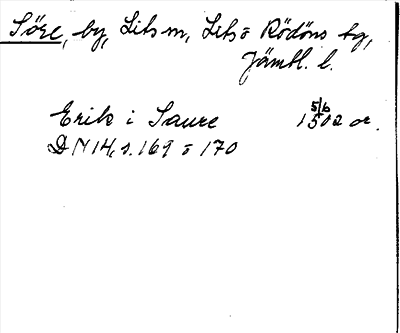 Söre, by, Lits sn, Lits o Rödöns tg,
Jämtl. l.
Erik i Saure 5/6 1502 or.
DN 14, s. 169 o 170